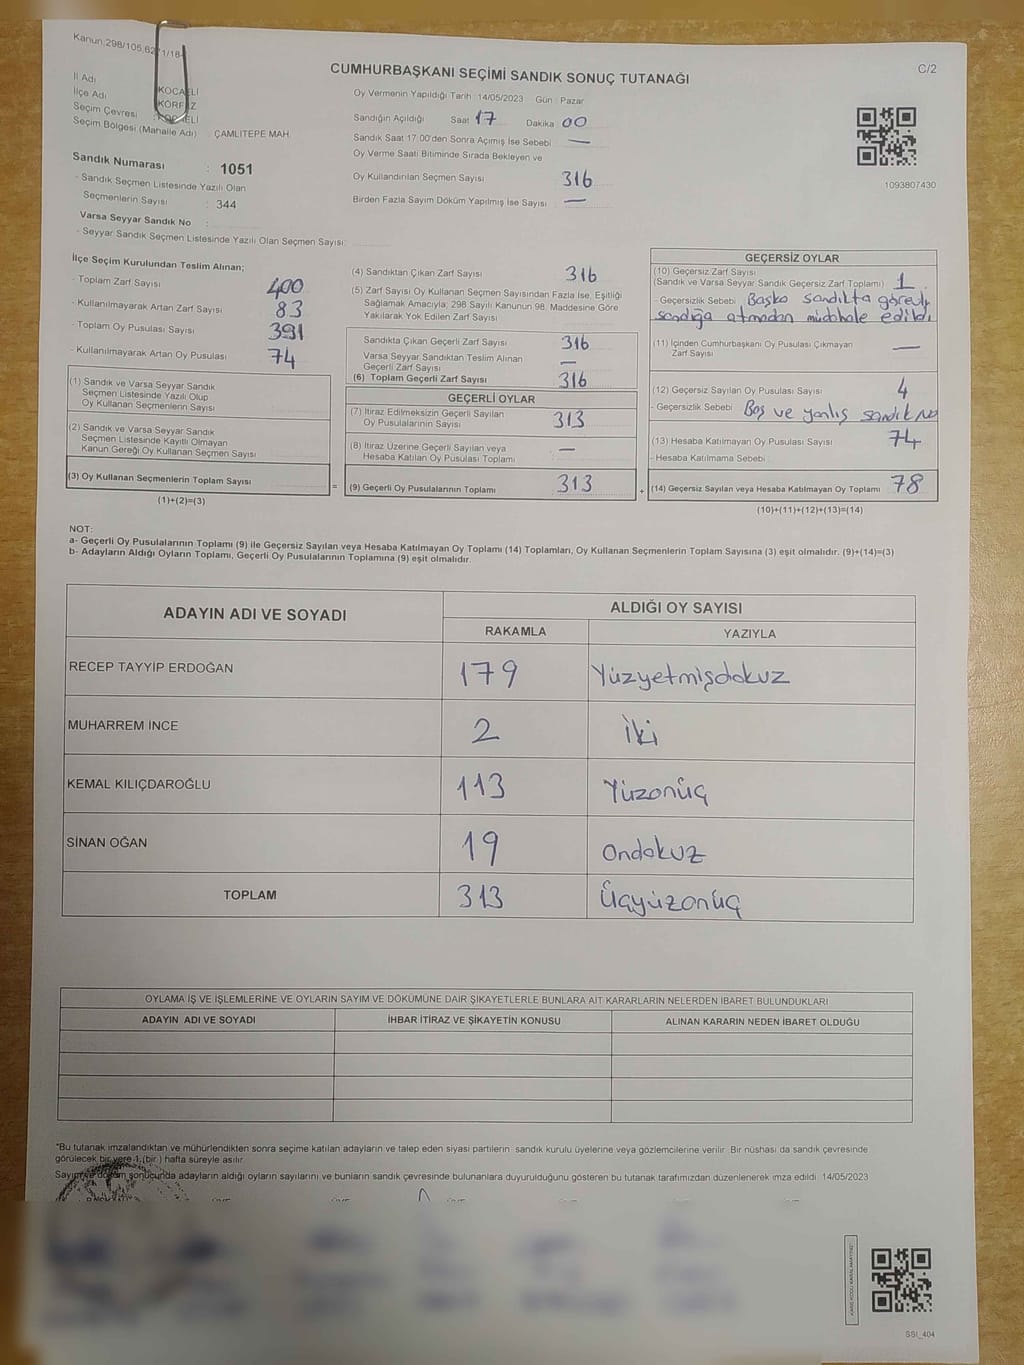 Kanun;298/105,6271/18-
CUMHURBAŞKANI SEÇİMİ SANDIK SONUÇ TUTANAĞI
C/2
İl Adı KOCAELİ
İlçe Adı KÖRFEZ
Seçim Çevresi KOCAELİ
Seçim Bölgesi (Mahalle Adı) ÇAMLITEPE MAH.
Sandık Numarası : 1051
- Sandık Seçmen Listesinde Yazılı Olan
Seçmenlerin Sayısı : 344
Varsa Seyyar Sandık No :
- Seyyar Sandık Seçmen Listesinde Yazılı Olan Seçmen Sayısı:
Oy Vermenin Yapıldığı Tarih : 14/05/2023 Gün : Pazar
Sandığın Açıldığı Saat 17 Dakika 00
Sandık Saat 17:00'den Sonra Açımış İse Sebebi —
Oy Verme Saati Bitiminde Sırada Bekleyen ve
Oy Kullandırılan Seçmen Sayısı 316
Birden Fazla Sayım Döküm Yapılmış İse Sayısı —
1093807430
İlçe Seçim Kurulundan Teslim Alınan;
- Toplam Zarf Sayısı 400
- Kullanılmayarak Artan Zarf Sayısı 83
- Toplam Oy Pusulası Sayısı 391
- Kullanılmayarak Artan Oy Pusulası 74
(1) Sandık ve Varsa Seyyar Sandık
Seçmen Listesinde Yazılı Olup
Oy Kullanan Seçmenlerin Sayısı
(2) Sandık ve Varsa Seyyar Sandık
Seçmen Listesinde Kayıtlı Olmayan
Kanun Gereği Oy Kullanan Seçmen Sayısı
(3) Oy Kullanan Seçmenlerin Toplam Sayısı
(1)+(2)=(3)
=
(4) Sandıktan Çıkan Zarf Sayısı 316
(5) Zarf Sayısı Oy Kullanan Seçmen Sayısından Fazla İse, Eşitliği
Sağlamak Amacıyla; 298 Sayılı Kanunun 98. Maddesine Göre
Yakılarak Yok Edilen Zarf Sayısı
Sandıkta Çıkan Geçerli Zarf Sayısı 316
Varsa Seyyar Sandıktan Teslim Alınan
Geçerli Zarf Sayısı —
(6) Toplam Geçerli Zarf Sayısı 316
GEÇERLİ OYLAR
(7) İtiraz Edilmeksizin Geçerli Sayılan
Oy Pusulalarının Sayısı 313
(8) İtiraz Üzerine Geçerli Sayılan veya
Hesaba Katılan Oy Pusulası Toplamı —
(9) Geçerli Oy Pusulalarının Toplamı 313
+
GEÇERSİZ OYLAR
(10) Geçersiz Zarf Sayısı
(Sandık ve Varsa Seyyar Sandık Geçersiz Zarf Toplamı) 1
- Geçersizlik Sebebi Başka sandıkta görevli
sandığa atmadan müdahale edildi.
(11) İçinden Cumhurbaşkanı Oy Pusulası Çıkmayan
Zarf Sayısı —
(12) Geçersiz Sayılan Oy Pusulası Sayısı 4
- Geçersizlik Sebebi Boş ve yanlış sandık No
(13) Hesaba Katılmayan Oy Pusulası Sayısı 74
- Hesaba Katılmama Sebebi
(14) Geçersiz Sayılan veya Hesaba Katılmayan Oy Toplamı 78
(10)+(11)+(12)+(13)=(14)
NOT:
a- Geçerli Oy Pusulalarının Toplamı (9) ile Geçersiz Sayılan veya Hesaba Katılmayan Oy Toplamı (14) Toplamları, Oy Kullanan Seçmenlerin Toplam Sayısına (3) eşit olmalıdır. (9)+(14)=(3)
b- Adayların Aldığı Oyların Toplamı, Geçerli Oy Pusulalarının Toplamına (9) eşit olmalıdır.
ADAYIN ADI VE SOYADI ALDIĞI OY SAYISI
RAKAMLA YAZIYLA
RECEP TAYYİP ERDOĞAN 179 Yüzyetmişdokuz
MUHARREM İNCE 2 İki
KEMAL KILIÇDAROĞLU 113 Yüzonüç
SİNAN OĞAN 19 Ondokuz
TOPLAM 313 Üçyüzonüç
OYLAMA İŞ VE İŞLEMLERİNE VE OYLARIN SAYIM VE DÖKÜMÜNE DAİR ŞİKAYETLERLE BUNLARA AİT KARARLARIN NELERDEN İBARET BULUNDUKLARI
ADAYIN ADI VE SOYADI İHBAR İTİRAZ VE ŞİKAYETİN KONUSU ALINAN KARARIN NEDEN İBARET OLDUĞU
*Bu tutanak imzalandıktan ve mühürlendikten sonra seçime katılan adayların ve talep eden siyasi partilerin sandık kurulu üyelerine veya gözlemcilerine verilir. Bir nüshası da sandık çevresinde
görülecek bir yere 1 (bir ) hafta süreyle asılır.
Sayım ve döküm sonucunda adayların aldığı oyların sayılarını ve bunların sandık çevresinde bulunanlara duyurulduğunu gösteren bu tutanak tarafımızdan düzenlenerek imza edildi. 14/05/2023
SSİ_404